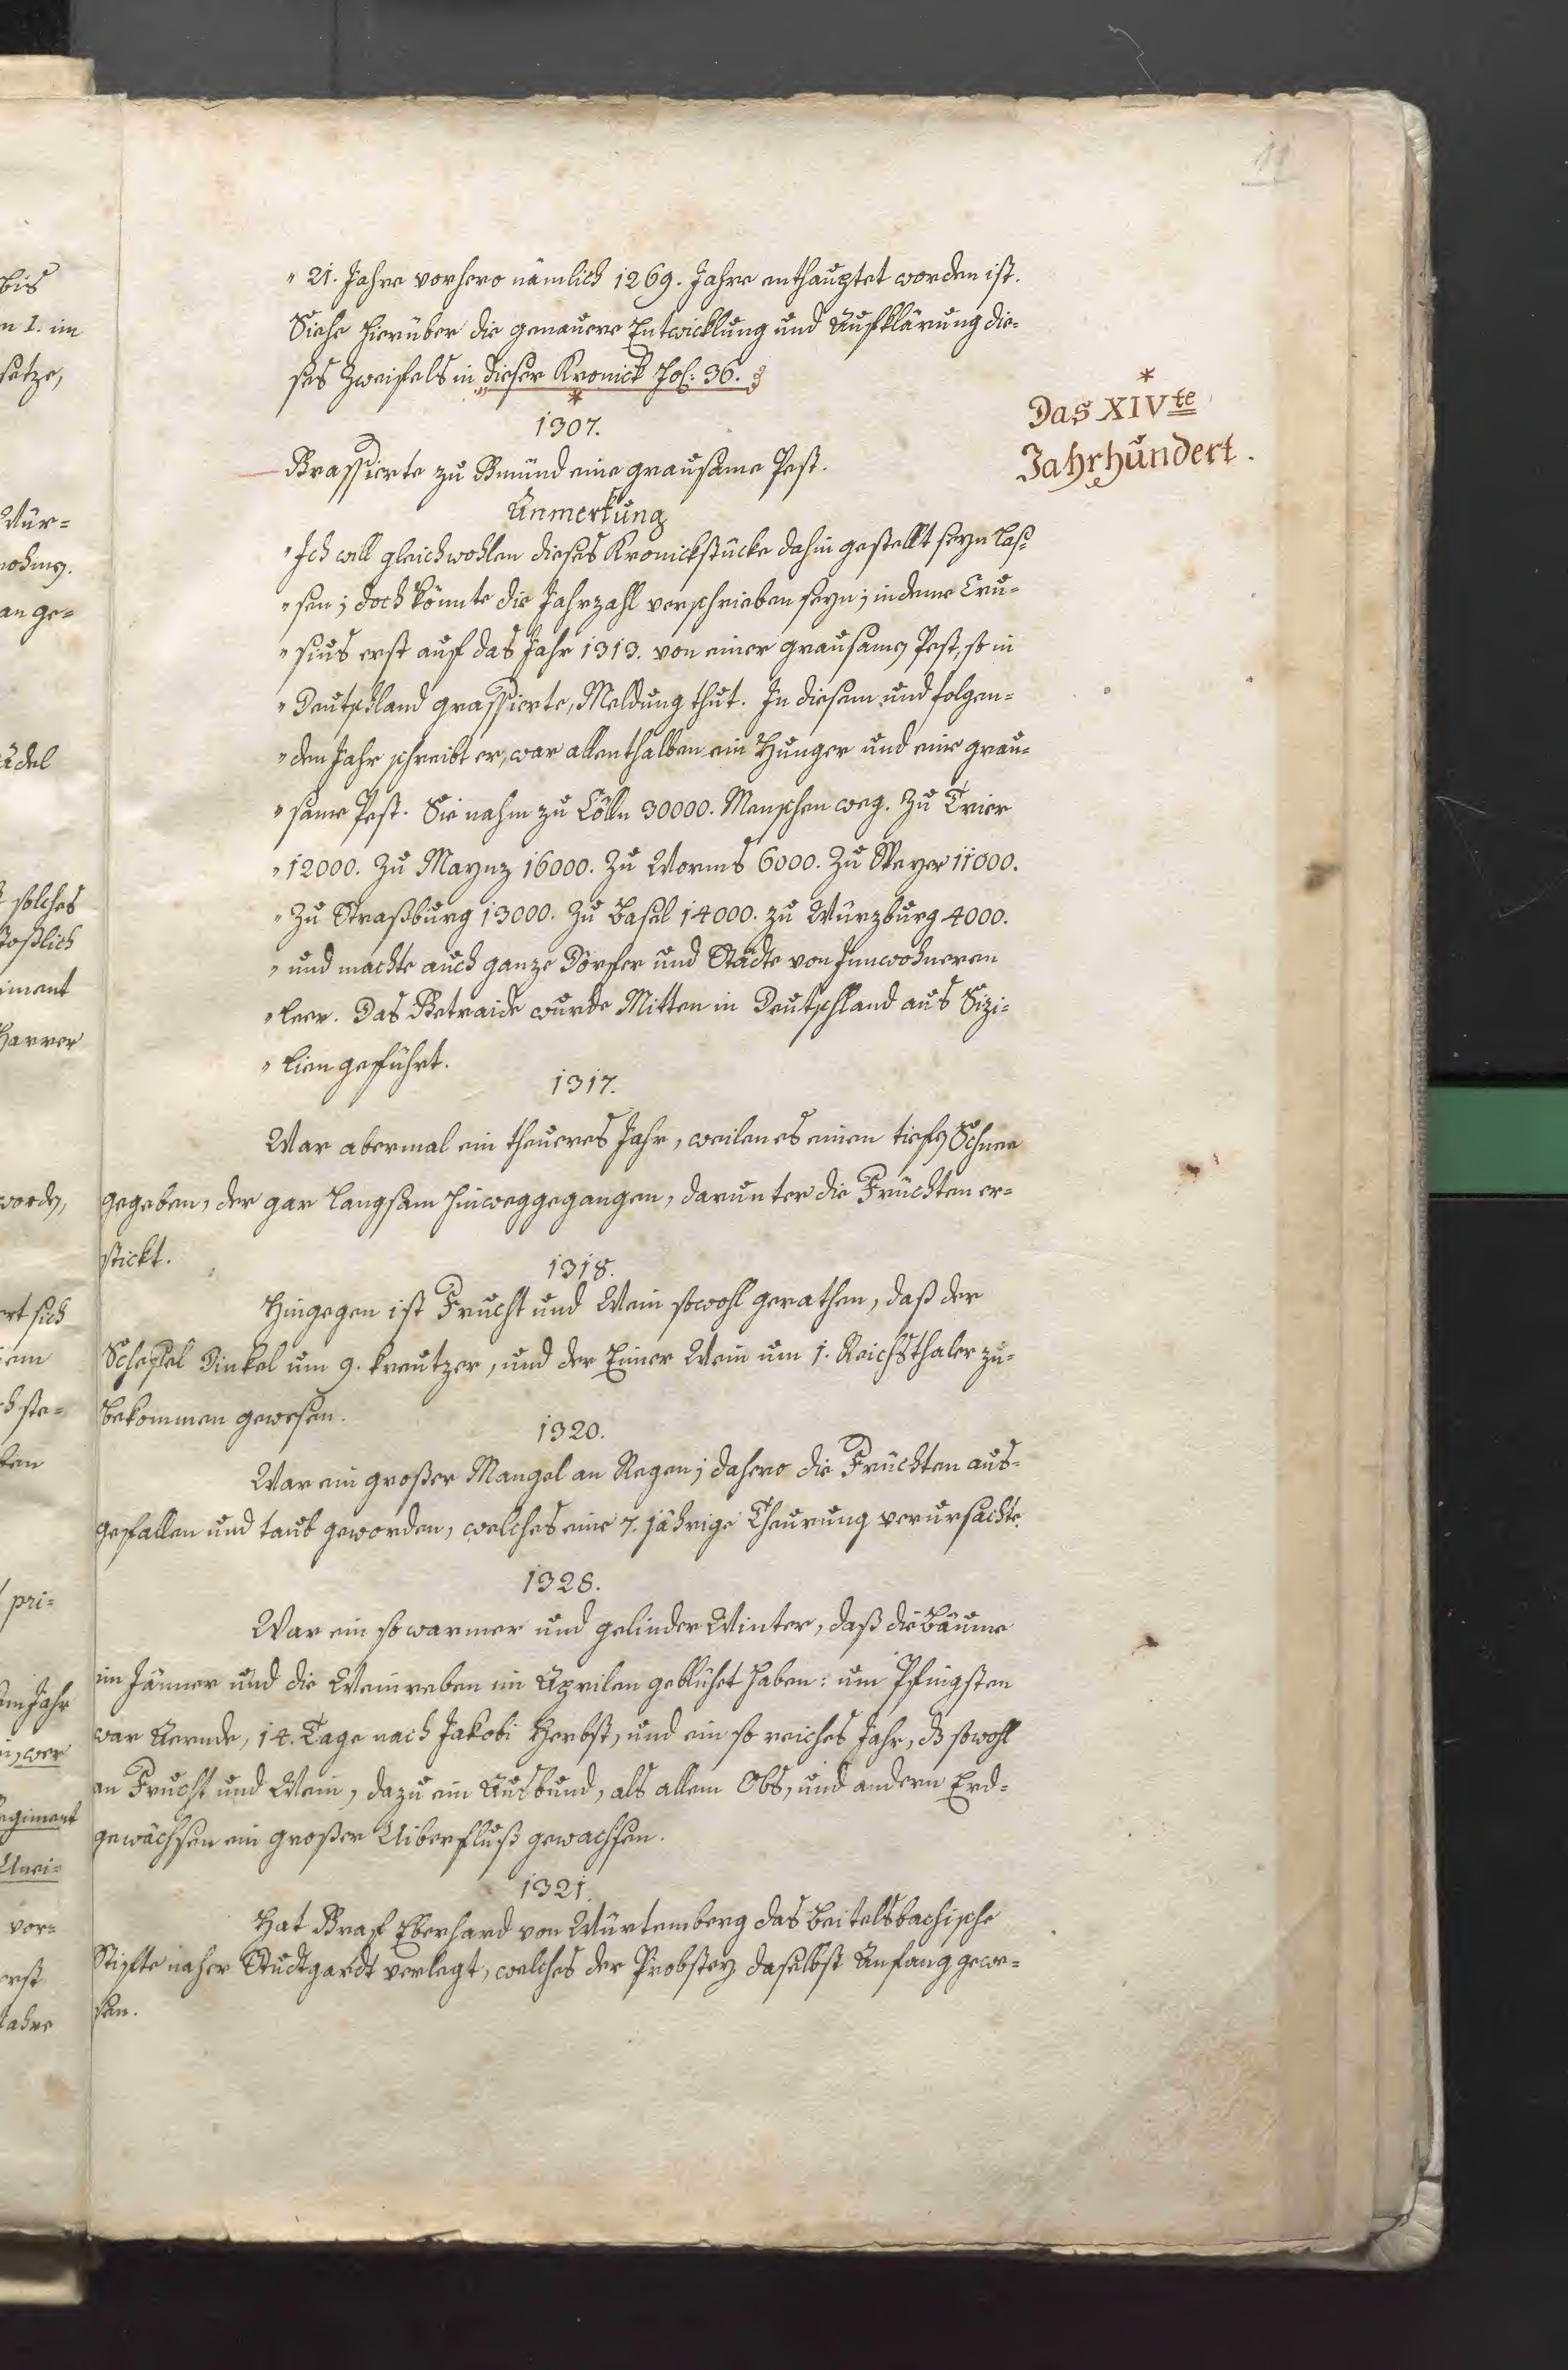 11
" 21. Jahre vorhero nämlich 1269. Jahre enthauptet worden ist.
Siehe hierüber die genauere Entwicklung und Aufklärung die=
ses Zweifels in dieser Kronick Fol: 36.
*
*
Das XIVte
Jahrhundert.
1307.
Grassierte zu Gmünd eine grausame Pest.
Anmerkung
" Ich will gleichwohlen dieses Kronickstücke dahin gestellt seyn las=
" sen; doch könnte die Jahrzahl verschrieben seyn; indeme Cru=
" sius erst auf das Jahr 1313. von einer grausamen Pest, so in
" Deutschland grassierte, Meldung thut. In diesem und folgen=
" den Jahr schreibt er, war allenthalben ein Hunger und eine grau=
" same Pest. Sie nahm zu Cölln 30000. Menschen weg. Zu Trier
" 12000. Zu Maynz 16000. Zu Worms 6000. Zu Speyer 11000.
" Zu Straßburg 13000. Zu Basel 14000. zu Würzburg 4000.
" und machte auch ganze Dörfer und Städte von Innwohneren
" leer. Das Getraide wurde Mitten in Deutschland aus Sizi=
" lien geführt.
1317.
War abermal ein theueres Jahr, weilen es einen tiefen Schnee
gegeben, der gar langsam hinweggegangen, darunter die Früchten er=
stickt.
1318.
Hingegen ist Frucht und Wein sowohl gerathen, daß der
Scheffel Dinkel um 9. kreutzer, und der Eimer Wein um 1. Reichsthaler zu=
bekommen gewesen.
1320.
War ein großer Mangel an Regen; dahero die Früchten aus=
gefallen und taub geworden, welches eine 7. jährige Theurung verursachte.
1328.
War ein so warmer und gelinder Winter, daß die Bäume
im Jänner und die Weinreben im Aprilen geblühet haben: um Pfingsten
war Aernde, 14. Tage nach Jakobi Herbst, und ein so reiches Jahr, dß sowohl
an Frucht und Wein, dazu ein Ausbund, als allem Obs, und andern Erd=
gewächsen ein großer Uiberfluß gewachsen.
1321.
Hat Graf Eberhard von Würtemberg das Beitelsbachische
Stifte naher Studtgardt verlegt, welches der Probstey daselbst Anfang gewe=
sen.